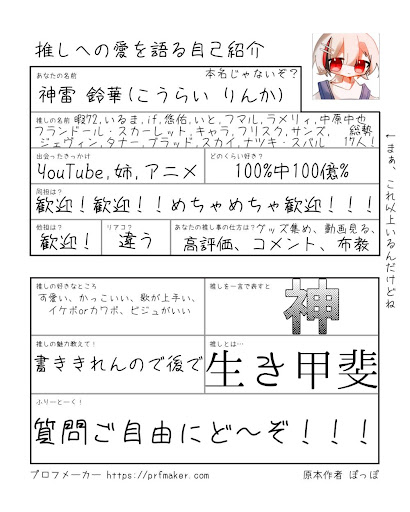 推しへの愛を語る自己紹介
あなたの名前
本名じゃないぞ？
神雷 鈴華(こうらい りんか)
推しの名前 暇72,いるま,if,悠佑,いと,フマル,ラメリィ,中原中也
フランドール・スカーレット,キャラ,フリスク,サンズ, 総勢
ジェヴィン,タナー,ブラッド,スカイ,ナツキ・スバル 17人！
出会ったきっかけ
YouTube,姉,アニメ
どのくらい好き？
100%中100億%
同担は？
歓迎！歓迎！！めちゃめちゃ歓迎！！！
他担は？
歓迎！
リアコ？
違う
あなたの推し事の仕方は？グッズ集め、動画見る、
高評価、コメント、布教
←まぁ、これ以上いるんだけどね
推しの好きなところ
可愛い、かっこいい、歌が上手い、
イケボorカワボ、ビジュがいい
推しを一言で表すと
神
推しの魅力教えて！
書ききれんので後で
推しとは…
生き甲斐
ふりーとーく！
質問ご自由にど～ぞ！！！
プロフメーカー https://prfmaker.com
原本作者 ぽっぽ